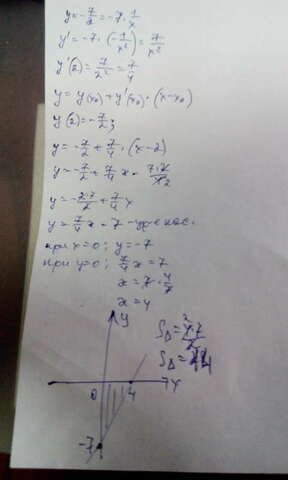 y = -7/x = -7 · 1/x
y' = -7 · (-1/x²) = 7/x²
y'(2) = 7/2² = 7/4
y = y(x₀) + y'(x₀) · (x-x₀)
y(2) = -7/2;
y = -7/2 + 7/4 · (x-2)
y = -7/2 + 7/4 x - 7·2/4
y = -2·7/2 + 7/4 x
y = 7/4 x - 7 - ур-е кас.
при x=0; y=-7
при y=0; 7/4 x = 7
x = 7 · 4/7
x = 4
y
S△ = 4·7/2
S△ = 14
0 4 x
-7